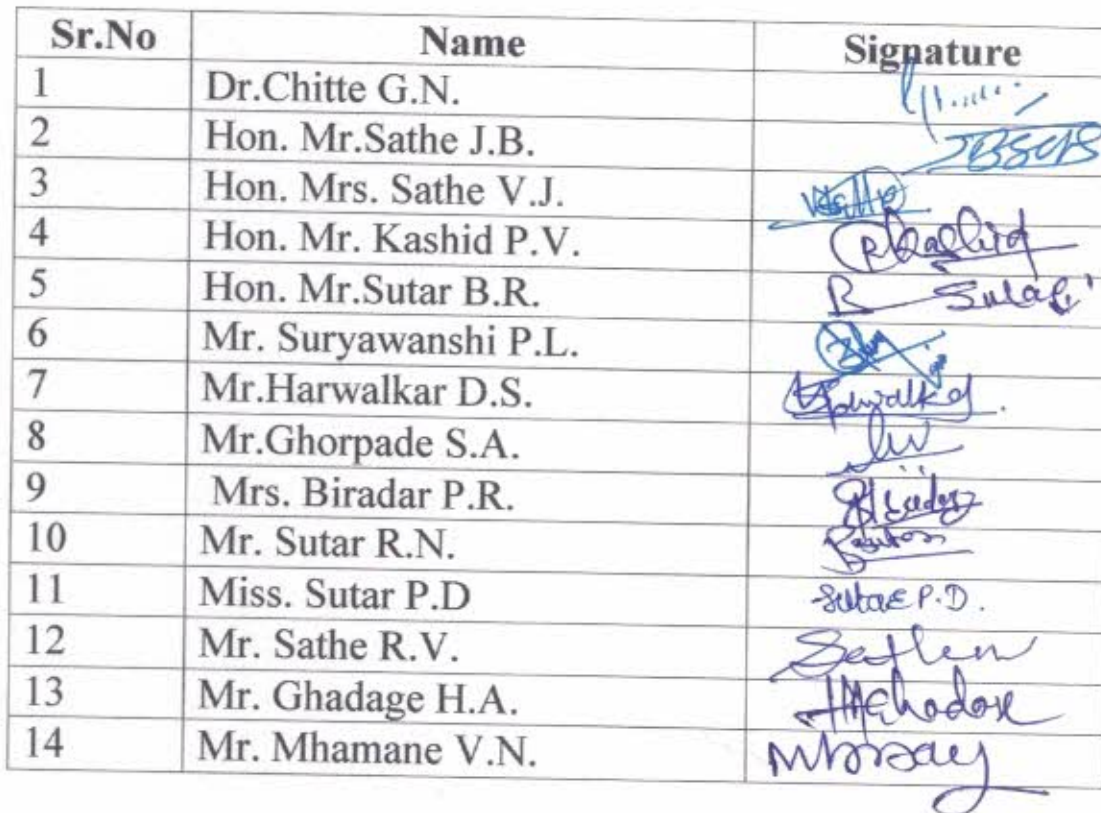 Sr.No Name Signature
1 Dr.Chitte G.N.
2 Hon. Mr.Sathe J.B.
3 Hon. Mrs. Sathe V.J.
4 Hon. Mr. Kashid P.V. PKashid
5 Hon. Mr.Sutar B.R.
6 Mr. Suryawanshi P.L.
7 Mr.Harwalkar D.S.
8 Mr.Ghorpade S.A.
9 Mrs. Biradar P.R.
10 Mr. Sutar R.N.
11 Miss. Sutar P.D Sutar P.D.
12 Mr. Sathe R.V.
13 Mr. Ghadage H.A.
14 Mr. Mhamane V.N.